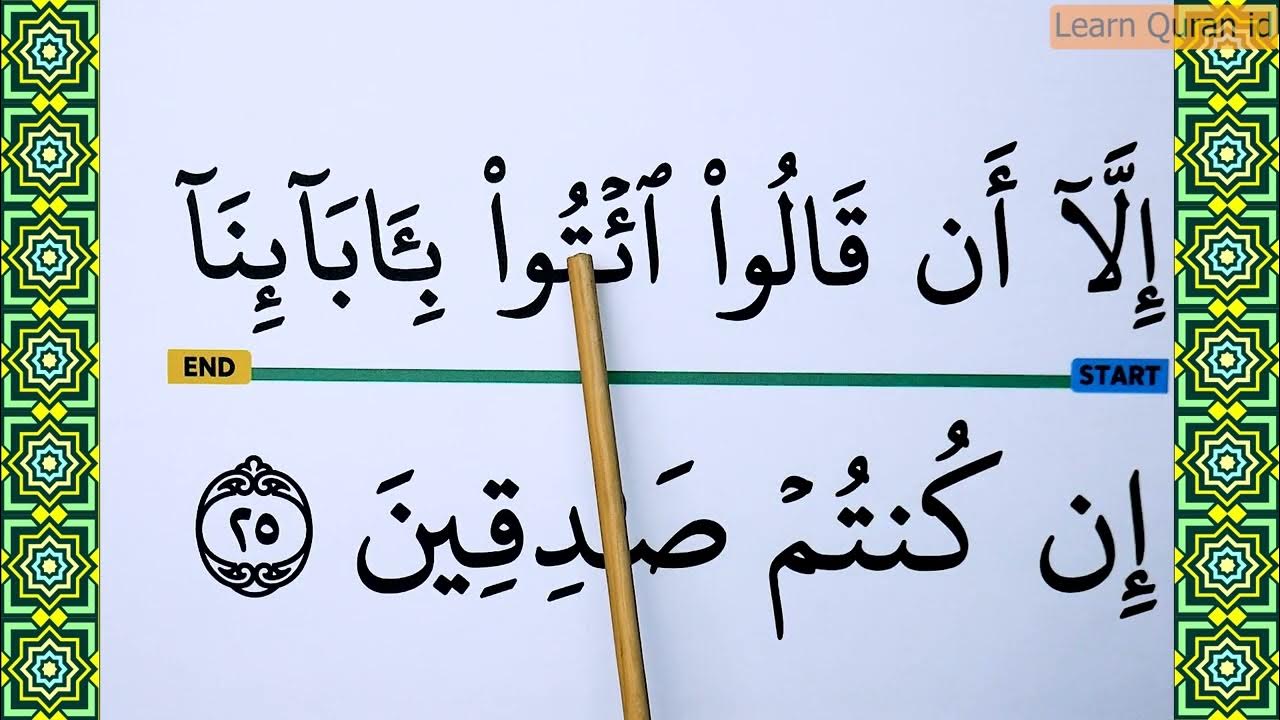 Learn Quran id
إِلَّآ أَن قَالُوا۟ ٱئْتُوا۟ بِـَٔابَآئِنَآ
END START
إِن كُنتُمْ صَـٰدِقِينَ ٢٥